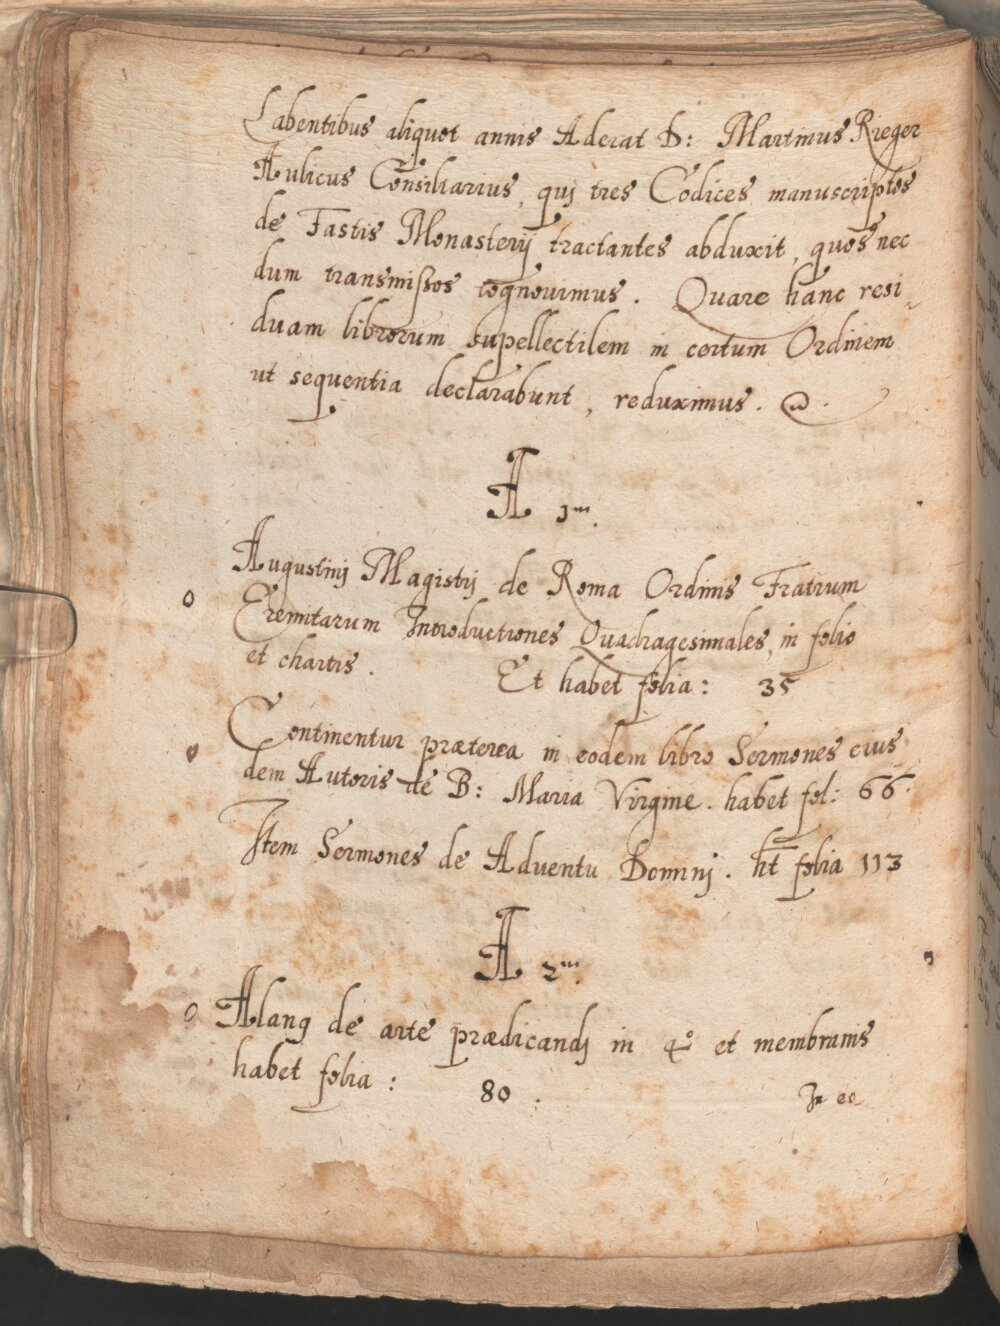 Labentibus aliquot annis Aderat D: Martinus Rieger
Aulicus Consiliarius, quj tres Codices manuscriptos
de Fastis Monasterij tractantes abduxit, quos nec
dum transmissos cognovimus. Quare hanc resi
duam librorum supellectilem in certum Ordinem
ut sequentia declarabunt, reduximus.
A 1m.
Augustinj Magistrj de Roma Ordinis Fratrum
o Eremitarum Introductiones Quadragesimales, in folio
et chartis. Et habet folia: 35
Continentur præterea in eodem libro Sermones eius
dem Autoris de B: Maria Virgine. habet fol: 66.
Item Sermones de Adventu Dominj. ht folia 113
A 2m.
o Alanꝯ de arte prædicandj in 4º et membranis
habet folia: 80.
In eo